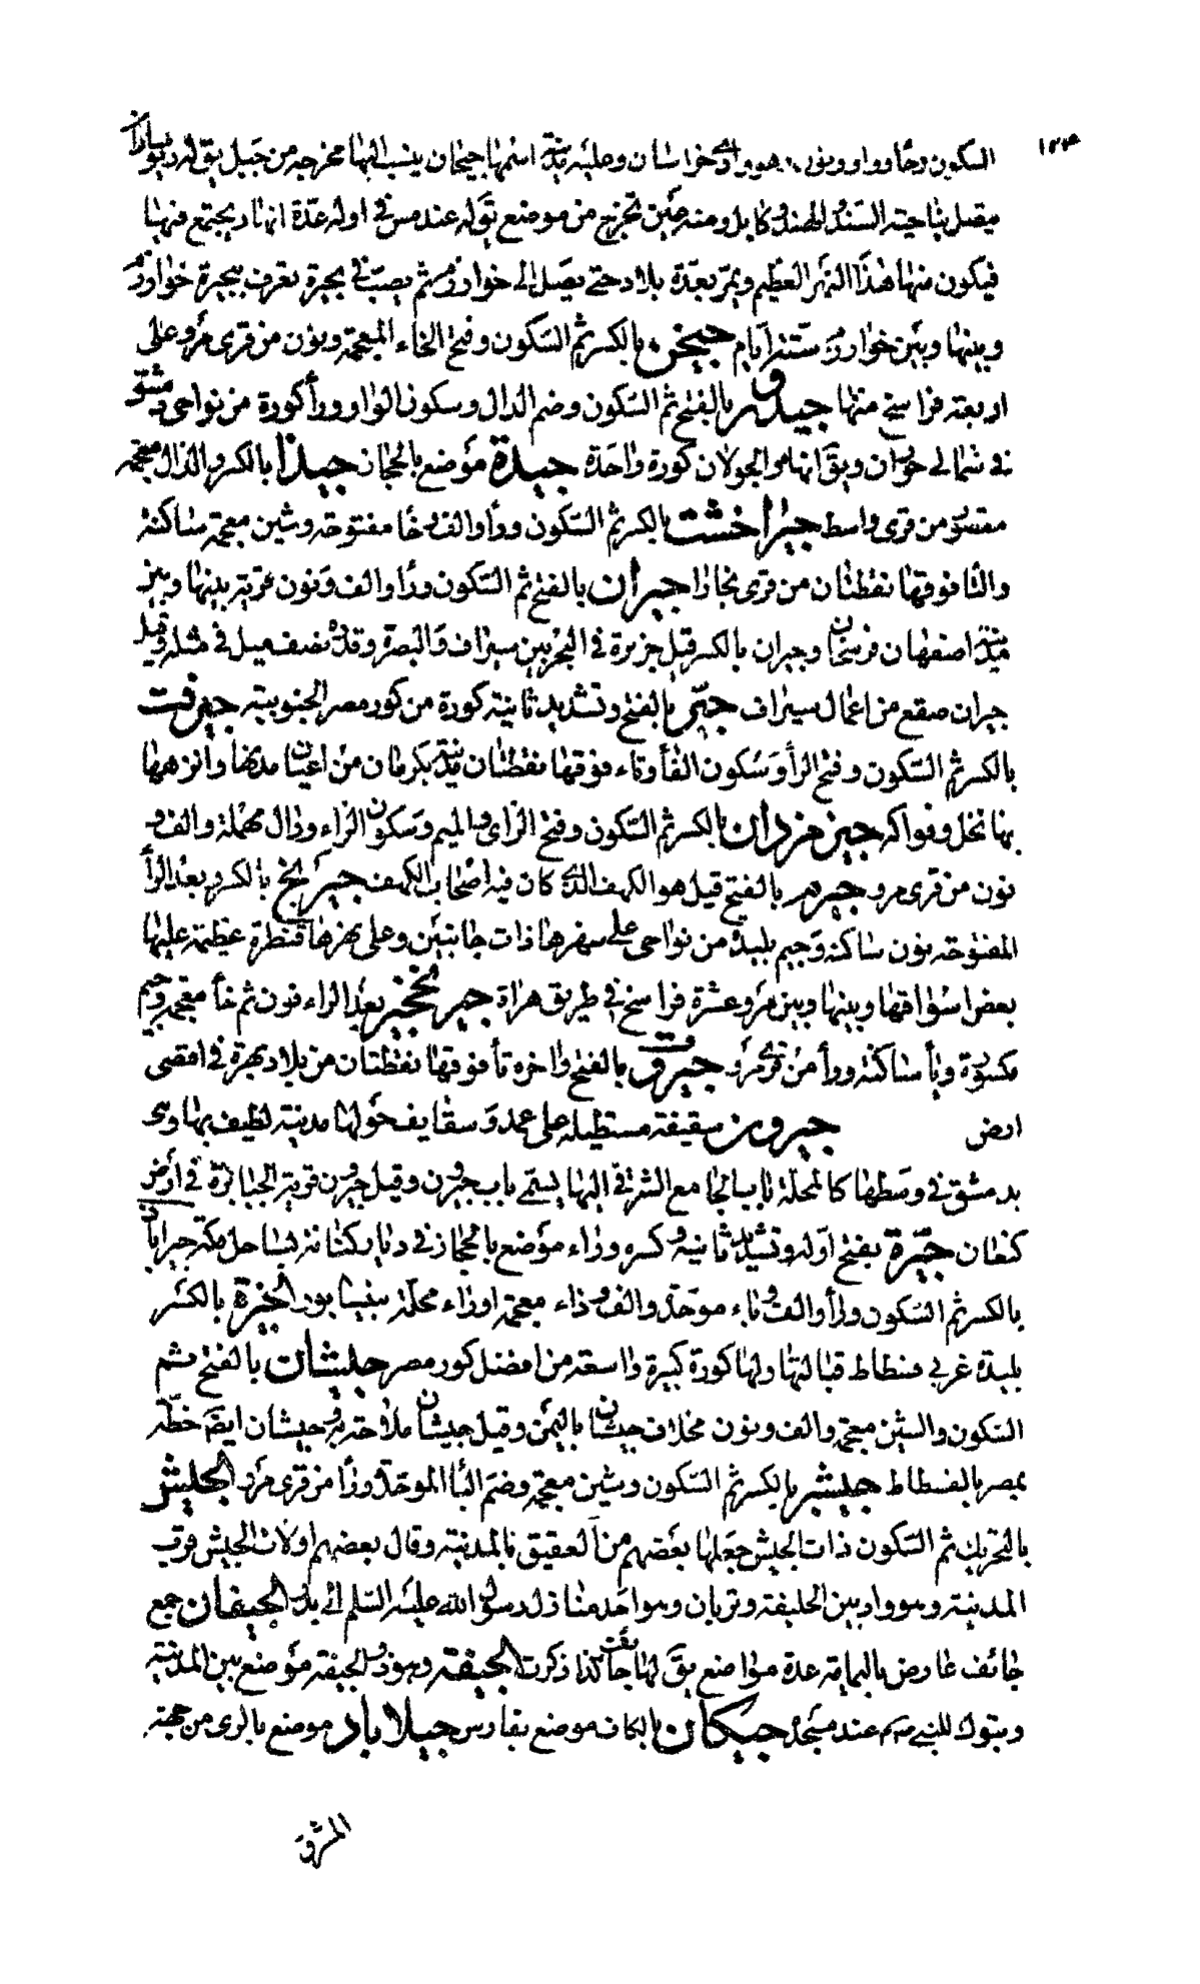 السكون وحا وواو ونون هو وادى خراسان وعليه مدينة اسمها جيحان ينسب اليها مخرجه من جبل يق له ريوساران
ميصل بناحية السند والهند وكابل ومنه عين تخرج من موضع يق له عندمس فى اوله عدة انهار يجتمع منها
فيكون منها هذا النهر العظيم ويمر بعدة بلاد حتى يصل الى خوارزم ثم يصب فى بحيرة تعرف ببحيرة خوارزم
وبينها وبين خوارزم ستة ايام جيخن بالكسر ثم السكون وفتح الخاء المعجمة ونون من قرى مرو على
اربعة فراسخ منها جيدور بالفتح ثم السكون وضم الدال وسكون الواو ورأ كورة من نواحى دمشق
فى شمالى حوران ويق انها والجولان كورة واحدة جيدة موضع بالحجاز جيذا بالكسر والذال معجمة
مقصور من قرى واسط جيراخشت بالكسر ثم السكون ورأ والف وخا مفتوحة وشين معجمة ساكنة
والتا فوقها نقطتان من قرى بخارا جيران بالفتح ثم السكون ورا والف ونون قرية بينها وبين
مدينة اصفهان فرسخان وجيران بالكسر قيل جزيرة فى البحر بين سيراف والبصرة وقدره نصف ميل فى مثله وقيل
جيران صقع من اعمال سيراف جير بالفتح وتشديد ثانية كورة من كور مصر الجنوبية جيرفت
بالكسر ثم السكون وفتح الرأ وسكون الفأ وتاء فوقها نقطتان مدينة بكرمان من اعيان مدنها وانزهها
بها نخل وفواكه جيزمزدان بالكسر ثم السكون وفتح الزاى والميم وسكون الزاء ودال مهملة والف و
نون من قرى مرو جيرم بالفتح قيل هو الكهف الذى كان فيه اصحاب الكهف جيرنج بالكسر وبعد الرأ
المفتوحة نون ساكنة وجيم بليد من نواحى على نهرها ذات جانبين وعلى نهرها قنطرة عظيمة عليها
بعض اسواقها وبينها وبين مرو عشرة فراسخ فى طريق هراة جيرنخجير بعد الراء نون ثم خأ معجمة وجيم
مكسورة ويأ ساكنة ورأ من قرى مرو جيروت بالفتح واخره تأ فوقها نقطتان من بلاد مهرة فى اقصى
ارض جيرون سقيفة مستطيلة على عمد وسقايف حولها مدينة تطيف بها وهى
بدمشق فى وسطها كالمحلة باب الجامع الشرقى اليها يسمى باب جيرون وقيل جيرون قرية الجبابرة فى ارض
كنعان جيرة بفتح اوله وتشديد ثانيه وكسره وراء موضع بالحجاز فى ديار كنانة بساحل مكة جيراباذ
بالكسر ثم السكون ورأ والف وباء موحدة والف وذاء معجمة اوزاء محلة بنيسابور الجيزة بالكسر
بليدة غربى فسطاط قبالتها ولها كورة كبيرة واسعة من افضل كور مصر جيشان بالفتح ثم
السكون والشين معجمة والف ونون مخلاف جيشان باليمن وقيل جيشان ملاحة به وجيشان ايضا خطة
بمصر بالفسطاط جيشبر بالكسر ثم السكون وشين معجمة وضم البا الموحدة ورا من قرى مرو الجيش
بالتحريك ثم السكون ذات الجيش جعلها بعضهم من العقيق بالمدينة وقال بعضهم اولات الجيش قرب
المدينة وهو واد بين الحليفة وتربان وهو احد منازل رسول الله عليه السلم الى بدر الجيفان جمع
جائف عارض باليمامة عدة مواضع يق لها جائف كذا ذكرت الجيفة وهو ذو الجيفة موضع بين المدينة
وتبوك للنبى صم عنده مسجد جيكان بالكاف موضع بفارس جيلاباد موضع بالرى من جهة
المشرق